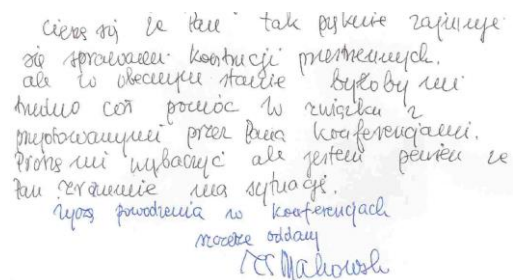 Cieszę się że Pan tak pięknie zajmuje
się sprawami konstrukcji przestrzennych,
ale w obecnym stanie byłoby mi
trudno coś pomóc w związku z
przygotowanymi przez Pana konferencjami.
Proszę mi wybaczyć ale jestem pewien że
Pan zrozumie mą sytuację.
Życzę powodzenia w konferencjach
szczerze oddany
Z S Makowski